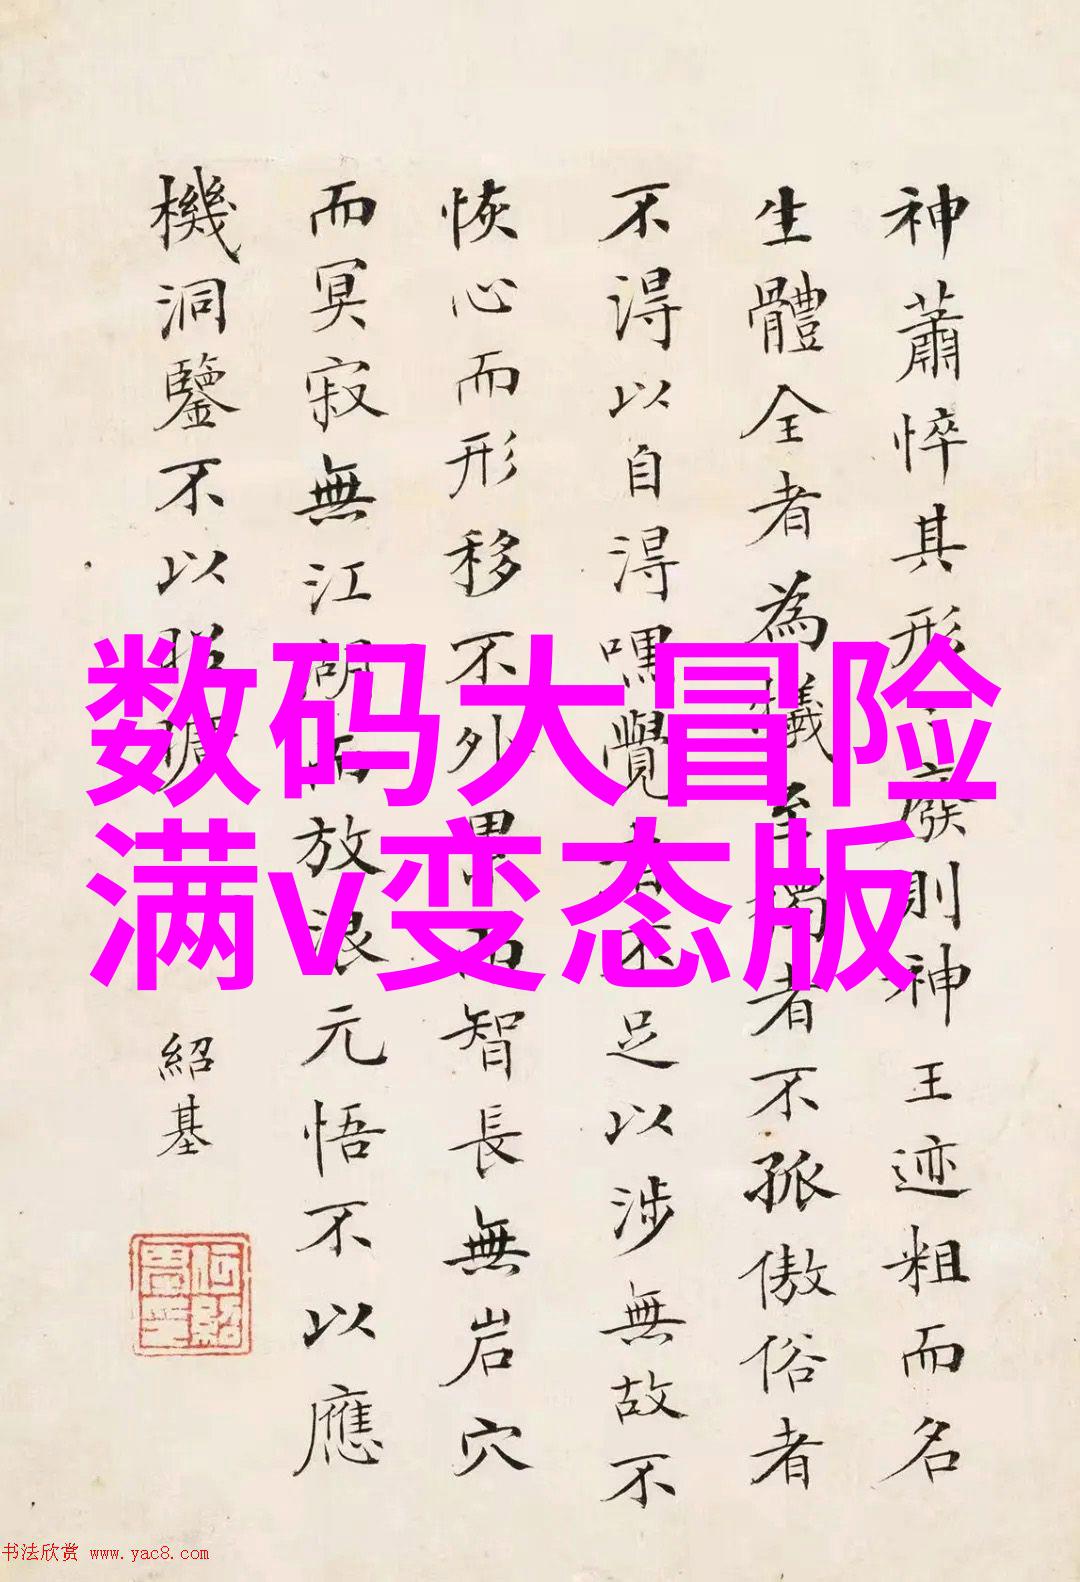 神蕭悴其形廢則神王迹粗而名
生體全者為犧至者不孤傲俗者
不得以自得嘿覺者不足以涉無故不
恢心而形移不外累而智長無岩穴
而冥寂無江湖而放浪元悟不以應
機洞鑒不以
紹基
数码大冒险
满v变态版
书法欣赏 www.yac8.com